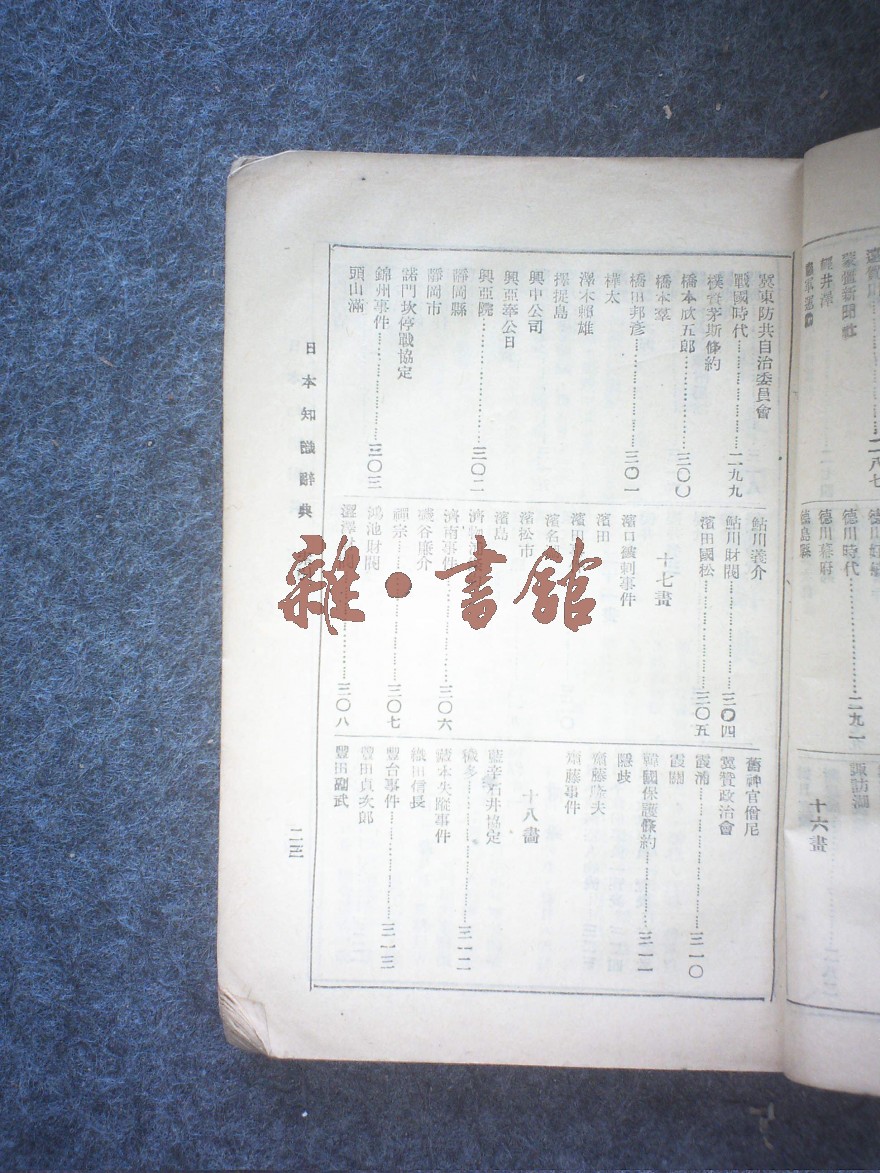 德川時代……二九一
德川幕府
德島縣
十六畫
諏訪湖
冀東防共自治委員會
戰國時代……二九九
樸資茅斯條約
橋本欣五郎……三〇〇
橋本羣
橋田邦彥……三〇一
樺太
澤本賴雄
擇捉島
興中公司
興亞奉公日
興亞院……三〇二
靜岡縣
靜岡市
諾門坎停戰協定
錦州事件……三〇三
頭山滿
鮎川義介
鮎川財閥……三〇四
濱田國松……三〇五
十七畫
濱口被刺事件
濱田
濱名
濱松市
濱島
濟南事件……三〇六
磯谷廉介
禪宗……三〇七
鴻池財閥
澀澤……三〇八
舊神官僧尼
翼贊政治會
霞浦……三一〇
霞關
韓國保護條約……三一一
隱歧
齋藤隆夫
齋藤事件
十八畫
藍辛石井協定
穢多……三一二
藏本失蹤事件
織田信長
豐台事件……三一三
豐田貞次郎
豐田副武
日本知識辭典
雜·書館